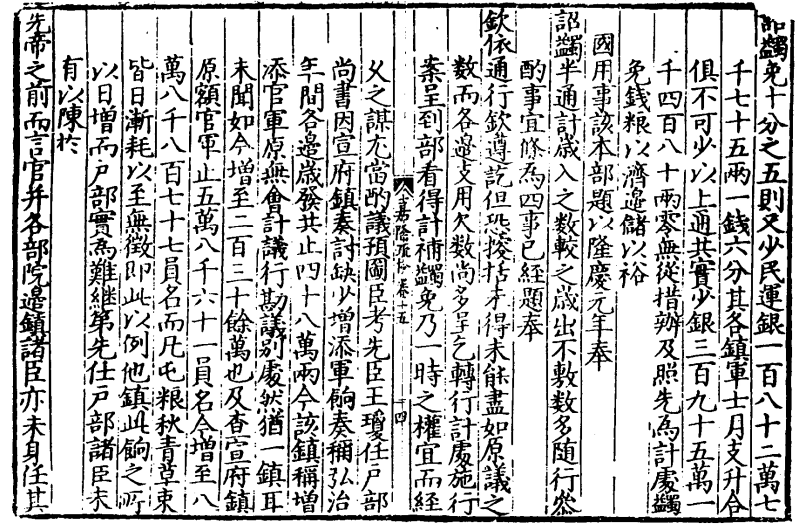 詔蠲免十分之五則又少民運銀一百八十二萬七
千七十五兩一錢六分其各鎮軍士月支升合
俱不可少以上通共實少銀三百九十五萬一
千四百八十兩零無從措辦及照先為計處蠲
免錢粮以濟邊儲以裕
國用事該本部題以隆慶元年奉
詔蠲半通計歲入之數較之歲出不敷數多隨行咨
酌事宜條為四事已經題奉
欽依通行欽遵訖但恐捜括才得未能盡如原議之
数而各邊支用欠数尚多呈乞轉行計處施行
案呈到部看得計補蠲免乃一時之權宜而經
嘉隆疏抄卷十五
二四
久之謀尤當酌議預圖臣考先臣王瓊任户部
尚書因宣府鎮奏討缺少增添軍餉奏稱弘治
年間各邊歲發共止四十八萬兩今該鎮稱增
添官軍原無會計議行勘議别處然猶一鎮耳
未聞如今增至二百三十餘萬也及查宣府鎮
原額官軍止五萬八千六十一員名今增至八
萬八千八百七十七員名而凡屯粮秋青草束
皆日漸耗以至無徵即此以例他鎮此餉之所
以日增而户部實為難継第先任户部諸臣未
有以陳於
先帝之前而言官并各部院邊鎮諸臣亦未身任其